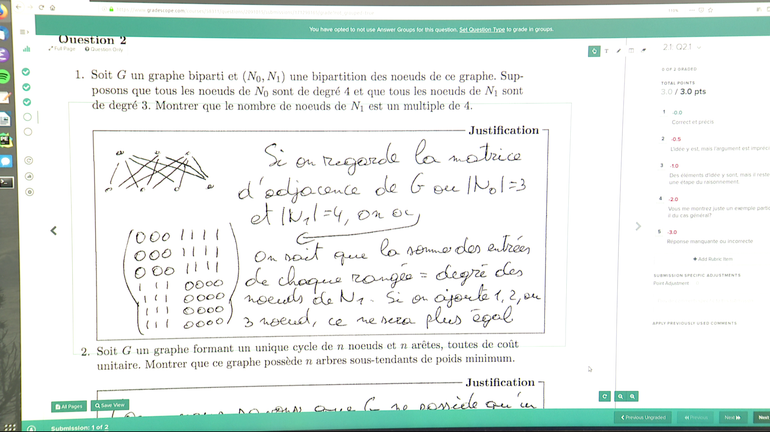 You have opted to not use Answer Groups for this question. Set Question Type to grade in groups.
Question 2
Full Page Question Only
1. Soit G un graphe biparti et (N₀, N₁) une bipartition des noeuds de ce graphe. Sup-
posons que tous les noeuds de N₀ sont de degré 4 et que tous les noeuds de N₁ sont
de degré 3. Montrer que le nombre de noeuds de N₁ est un multiple de 4.
Justification
Si on regarde la matrice
d'adjacence de G où |N₀|=3
et |N₁|=4, on a
0 0 0 1 1 1 1
0 0 0 1 1 1 1
0 0 0 1 1 1 1
1 1 1 0 0 0 0
1 1 1 0 0 0 0
1 1 1 0 0 0 0
1 1 1 0 0 0 0
On sait que la somme des entrées
de chaque rangée = degré des
noeuds de N₁. Si on ajoute 1, 2, ou
3 noeud, ce ne sera plus égal
2. Soit G un graphe formant un unique cycle de n noeuds et n arêtes, toutes de coût
unitaire. Montrer que ce graphe possède n arbres sous-tendants de poids minimum.
Justification
que G ne possède qu'un
All Pages Save View
Submission: 1 of 2
2.1: Q2.1
0 OF 2 GRADED
TOTAL POINTS
3.0 / 3.0 pts
1 -0.0
Correct et précis
2 -0.5
L'idée y est, mais l'argument est imprécis
3 -1.0
Des éléments d'idée y sont, mais il reste
une étape du raisonnement.
4 -2.0
Vous me montrez juste un exemple
du cas général?
5 -3.0
Réponse manquante ou incorrecte
+ Add Rubric Item
SUBMISSION SPECIFIC ADJUSTMENTS
Point Adjustment
APPLY PREVIOUSLY USED COMMENTS
Previous Ungraded Previous Next Next